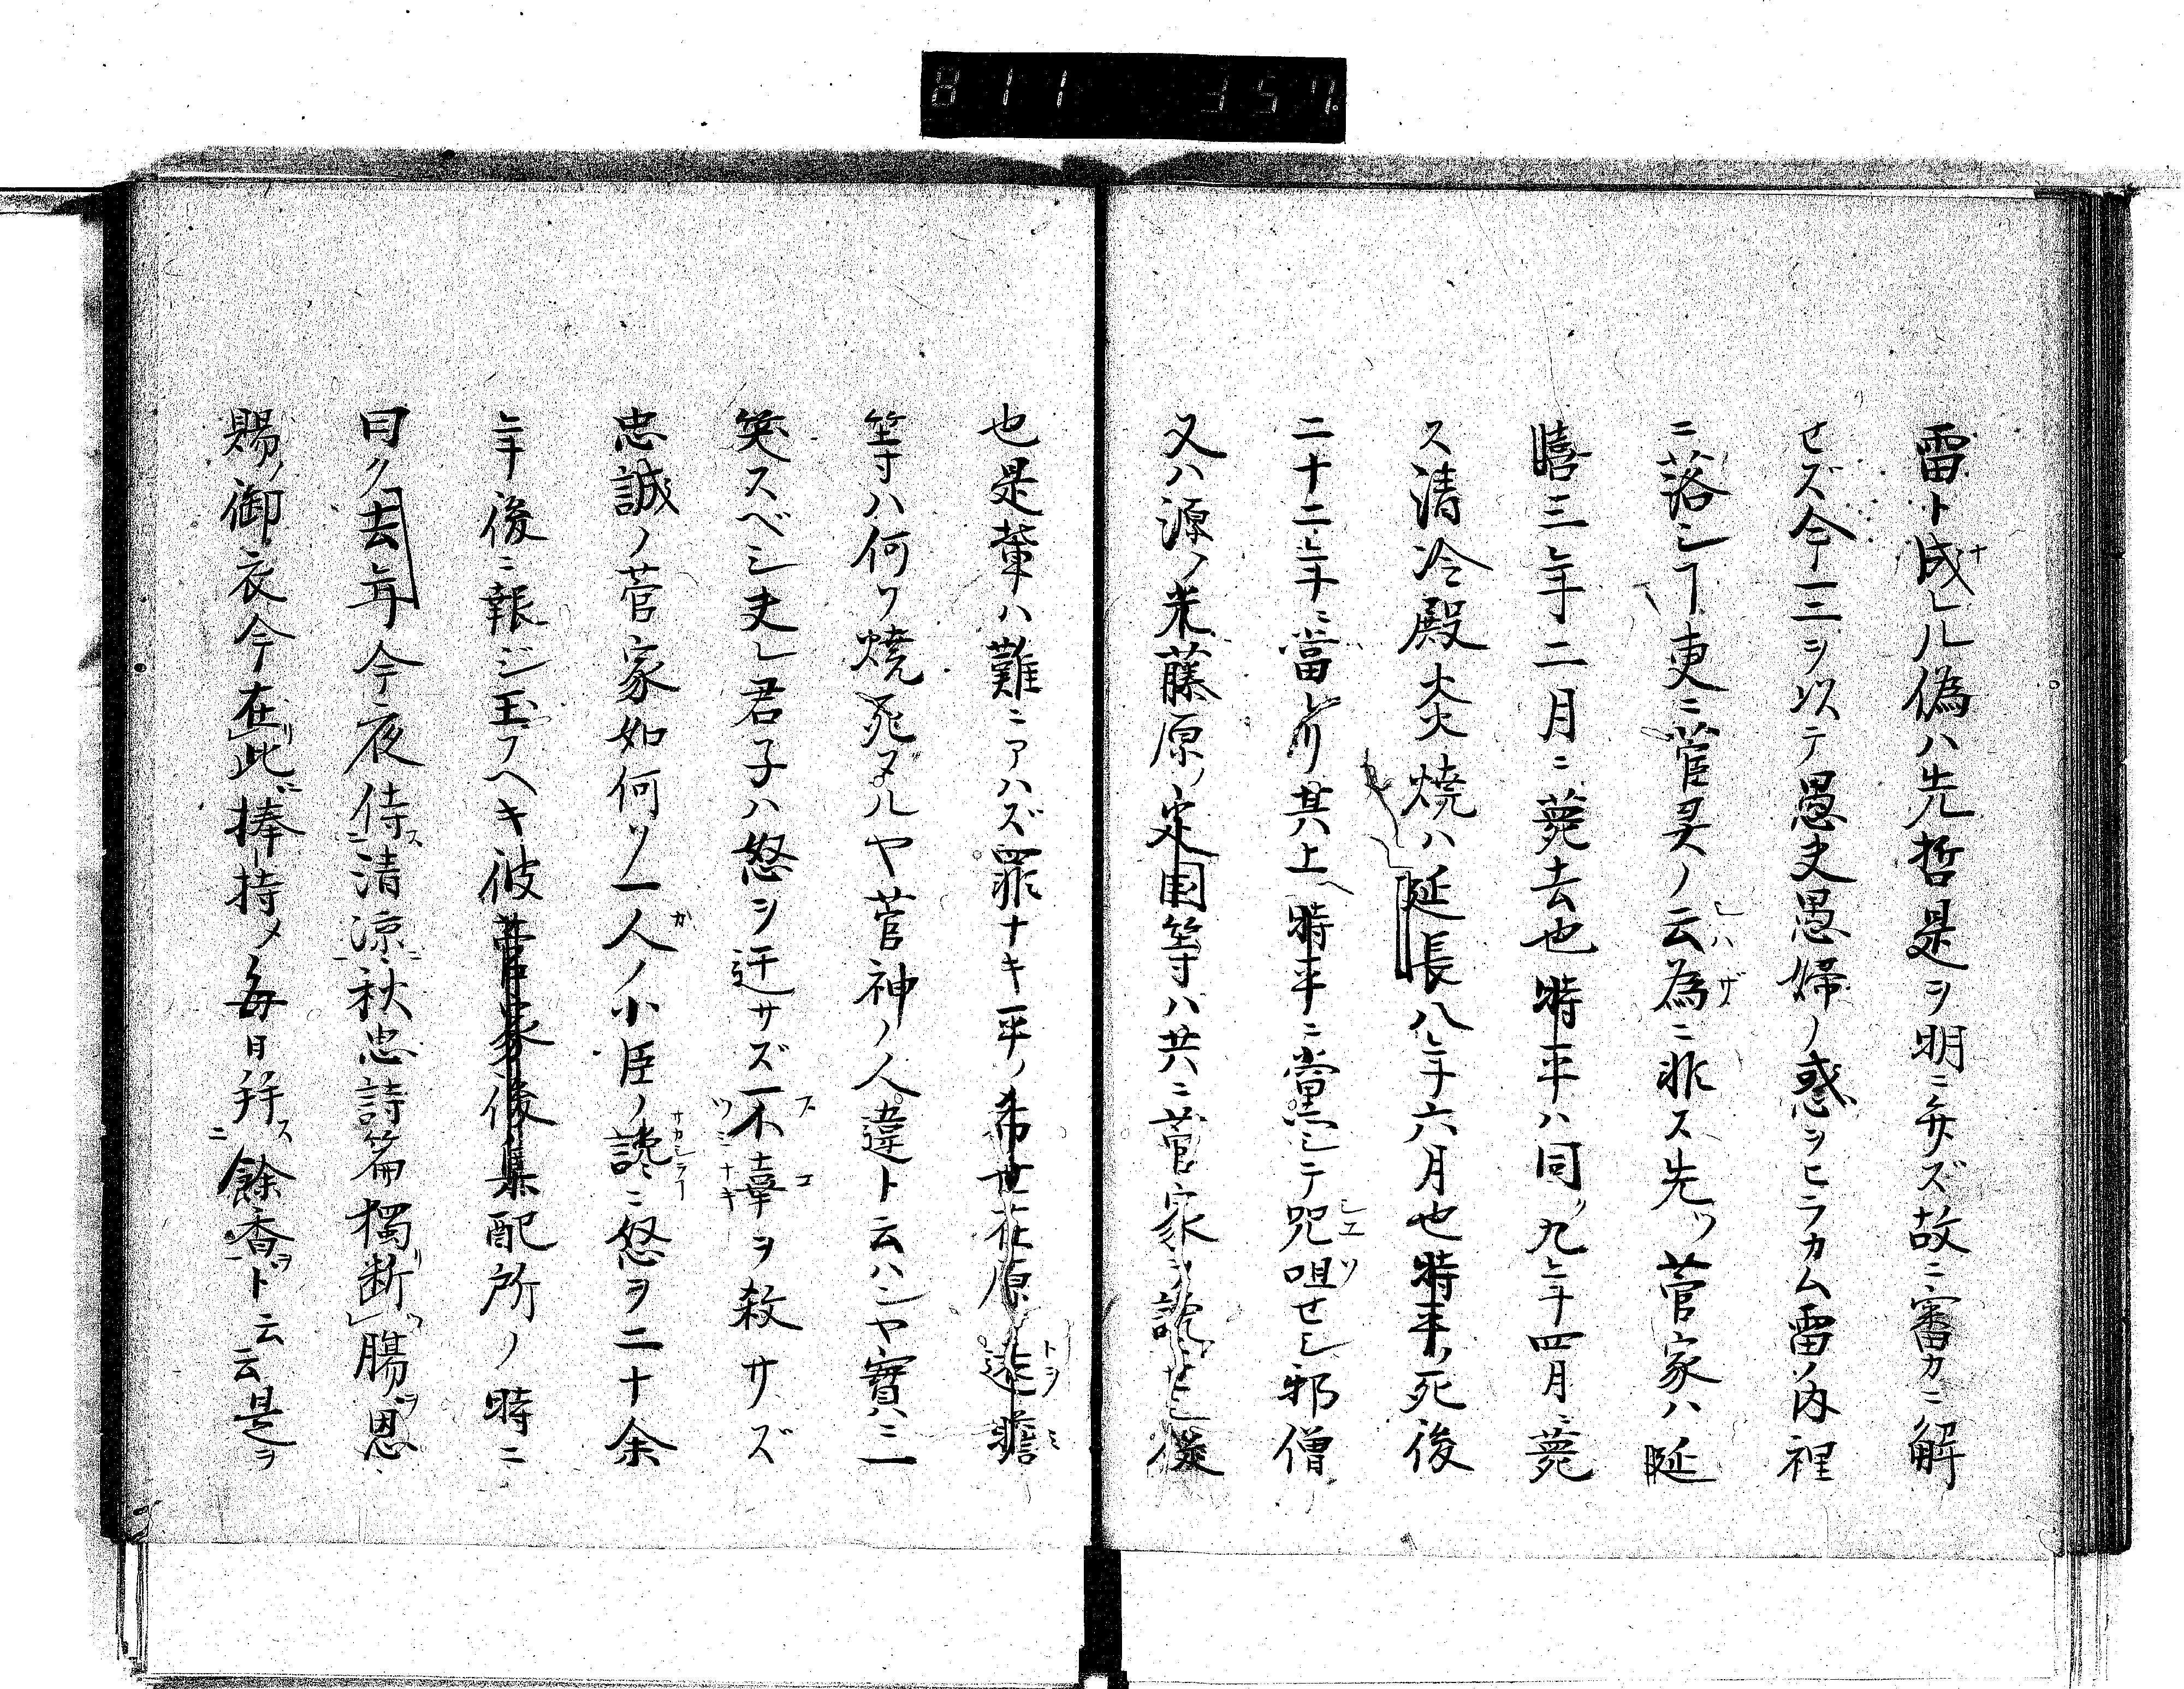 811 357
雷ト成レル偽ハ先哲是ヲ明ニ弁ズ故ニ審カニ解
セズ今一二ヲ以テ愚夫愚婦ノ惑ヲヒラカム雷ノ内裡
ニ落シヿ更ニ菅灵ノ云為ニ非ス先ツ菅家ハ延
喜三年二月ニ薨去也時平ハ同ク九年四月ニ薨
ス清冷殿炎焼ハ延長八年六月也時平ノ死後
二十二年ニ當レリ其上ヘ時平ニ黨シテ咒咀セシ邪僧
又ハ源ノ光藤原ノ定国等ハ共ニ菅家ヲ讒セシ
也是輩ハ難ニアハズ罪ナキ平ノ希世在原
等ハ何ソ焼死タルヤ菅神ノ人違ト云ハンヤ實ニ一
笑スベシ夫レ君子ハ怒ヲ迁サズ一不辜ヲ殺サズ
忠誠ノ菅家如何ソ一人ノ小臣ノ讒ニ怒ヲ二十余
年後ニ報ジ玉フヘキ彼菅家後集配所ノ時ニ
曰ク去年今夜侍清涼秋思詩篇獨断膓恩
賜ノ御衣今在此捧持メ毎日拜餘香ト云云是ヲ